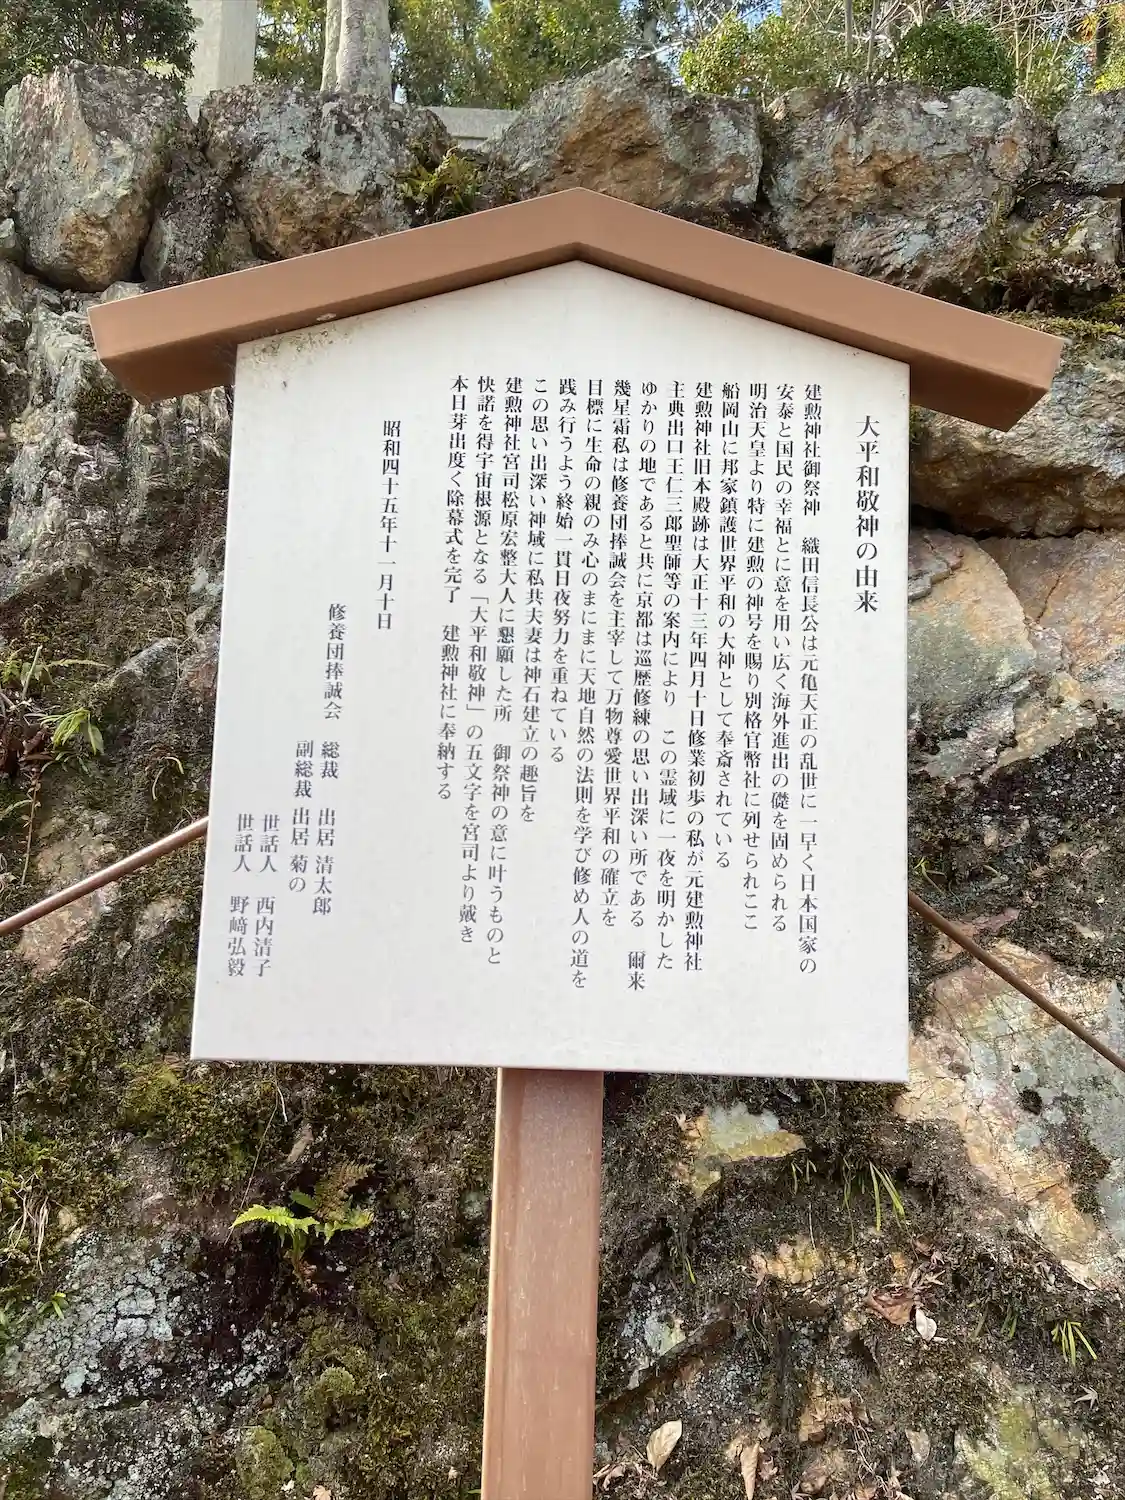 大平和敬神の由来
建勲神社御祭神　織田信長公は元亀天正の乱世に一早く日本国家の
安泰と国民の幸福とに意を用い広く海外進出の礎を固められる
明治天皇より特に建勲の神号を賜り別格官幣社に列せられここ
船岡山に邦家鎮護世界平和の大神として奉斎されている
建勲神社旧本殿跡は大正十三年四月十日修業初歩の私が元建勲神社
主典出口王仁三郎聖師等の案内により　この霊域に一夜を明かした
ゆかりの地であると共に京都は巡歴修練の思い出深い所である　爾来
幾星霜私は修養団捧誠会を主宰して万物尊愛世界平和の確立を
目標に生命の親のみ心のまにまに天地自然の法則を学び修め人の道を
践み行うよう終始一貫日夜努力を重ねている
この思い出深い神域に私共夫妻は神石建立の趣旨を
建勲神社宮司松原宏整大人に懇願した所　御祭神の意に叶うものと
快諾を得宇宙根源となる「大平和敬神」の五文字を宮司より戴き
本日芽出度く除幕式を完了　建勲神社に奉納する
昭和四十五年十一月十日
修養団捧誠会　総裁　出居 清太郎
副総裁　出居 菊の
世話人　西内清子
世話人　野﨑弘毅